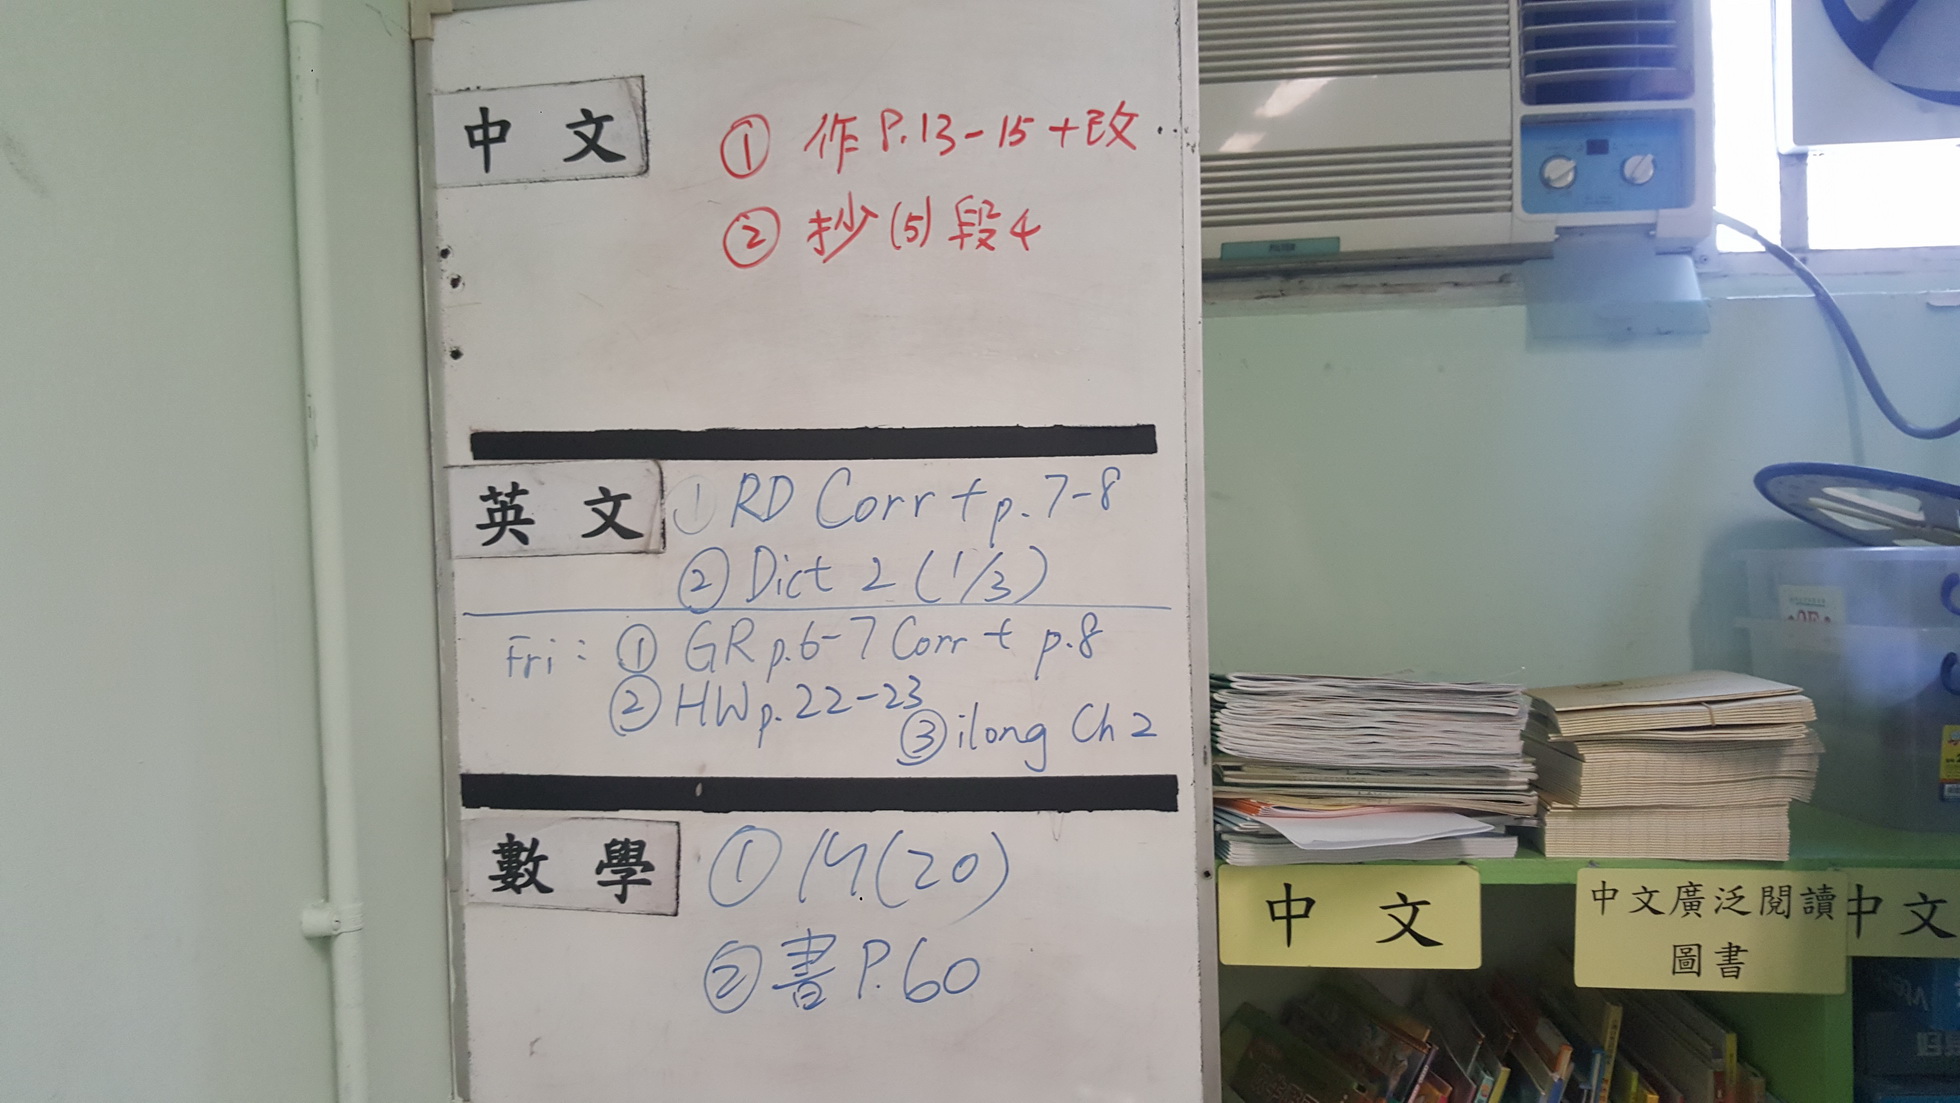 中 文
① 作 P.13-15 + 改
② 抄 (5) 段 4
英 文
① RD Corr + p.7-8
② Dict 2 (1/3)
Fri: ① GR p.6-7 Corr + p.8
② HW p.22-23
③ ilong Ch 2
數 學
① (20)
② 書 P.60
FILTER
中 文
中文廣泛閱讀
圖書
中文